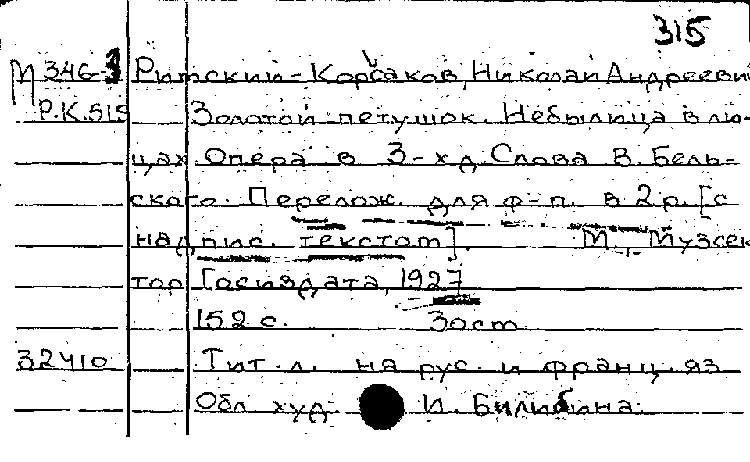 315
М 346-3 Римский-Корсаков, Николай Андреевич
Р.К.515 Золотой петушок. Небылица в ли-
цах. Опера в 3-х д. Слова В. Бель-
ского. Перелож. для ф-п. в 2 р. [с
надпис. текстом]. М., Музсек-
тор Госиздата, 1927
152 с. 30 cm
32410 Тит. л. на рус. и франц. яз
Обл. худ. И. Билибина.